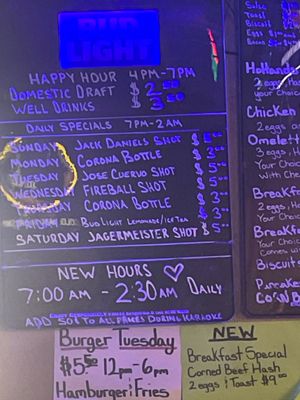 BUD
LIGHT
HAPPY HOUR 4PM-7PM
DOMESTIC DRAFT $2.50
WELL DRINKS $3.50
DAILY SPECIALS 7PM-2AM
SUNDAY JACK DANIELS SHOT $5.00
MONDAY CORONA BOTTLE $3.00
TUESDAY JOSE CUERVO SHOT $5.00
WEDNESDAY FIREBALL SHOT $5.00
THURSDAY CORONA BOTTLE $3.00
FRIDAY BUD LIGHT LEMONADE/ICE TEA $3.00
SATURDAY JAGERMEISTER SHOT $5.00
NEW HOURS
7:00 AM - 2:30 AM DAILY
ADD 50¢ TO ALL PRICES DURING KARAOKE
Burger Tuesday
$5.50 12pm-6pm
Hamburger & Fries
NEW
Breakfast Special
Corned Beef Hash
2 eggs & Toast $9.00
Salsa
Toast
Biscuit
Eggs
Bacon
your Choice
Chicken
2 eggs
Omelett
2 eggs, Ha
Your Choic
With Chee
Breakfa
2 eggs, Ha
Your Choi
Breakf
Your Choi
Comes wi
Biscuit
Pancake
Corn B